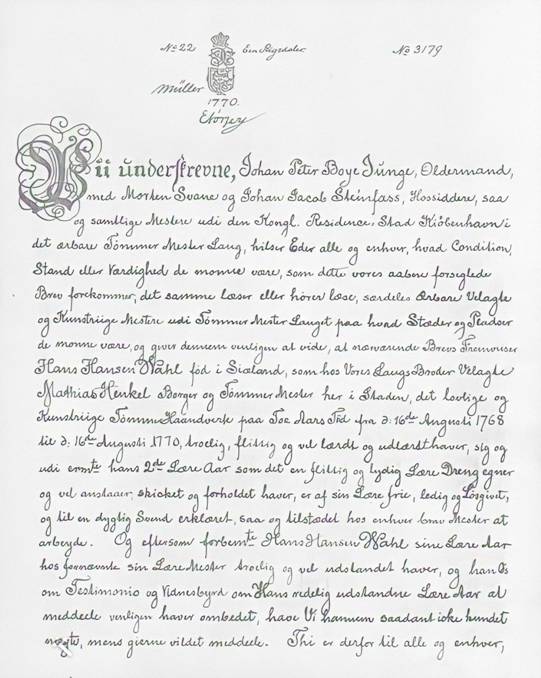 No 22 Een Rigsdaler No 3179
Müller
1770.
Vii underskrevne, Johan Peter Boye Junge, Oldermand,
med Morten Svane og Johan Jacob Steinfass, Hossiddere, saa
og samtlige Mestere udi den Kongl. Residence, Stad Kiöbenhavn i
det ærbare Tömmer Mester Laug, hilser Eder alle og enhver, hvad Condition,
Stand eller Værdighed de monne være, som dette vores aaben forseglede
Brev forekommer, det samme læser eller hörer læse, særdeles Ærbare Velagte
og Kunstriige Mestere udi Tömmer Mester Lauget paa hvad Stæder og Pladser
de monne være, og giver dennem venligen at vide, at nærværende Brevs Fremviiser
Hans Hansen Wahl föd i Siæland, som hos Vores Laugs Broder Velagte
Mathias Henkel Borger og Tömmer Mester her i Staden, det lovlige og
Kunstriige Tömmer Haandverk paa Toe Aars Tid fra d: 16de Augusti 1768
til d: 16de Augusti 1770, troelig, flittig og vel lærdt og udlærdt haver, sig og
udi ermte hans 2de Lære Aar som det en flittig og lydig Lære Dreng egner
og vel anstaaer, skicket og forholdet haver, er af sin Lære frie, ledig og Lösgivet,
og til en dygtig Svend erklæret, saa og tilstædet hos enhver brav Mester at
arbeyde. Og eftersom forbemte Hans Hansen Wahl sine Lære Aar
hos fornævnte sin Lære Mester troelig og vel udstandet haver, og han Os
om Testimonio og Vidnesbyrd om Hans redelig udstandne Lære Aar at
meddeele venligen haver ombedet, have Vi hannem saadant icke kundet
nægte, mens gierne vildet meddeele. Thi er derfor til alle og enhver,